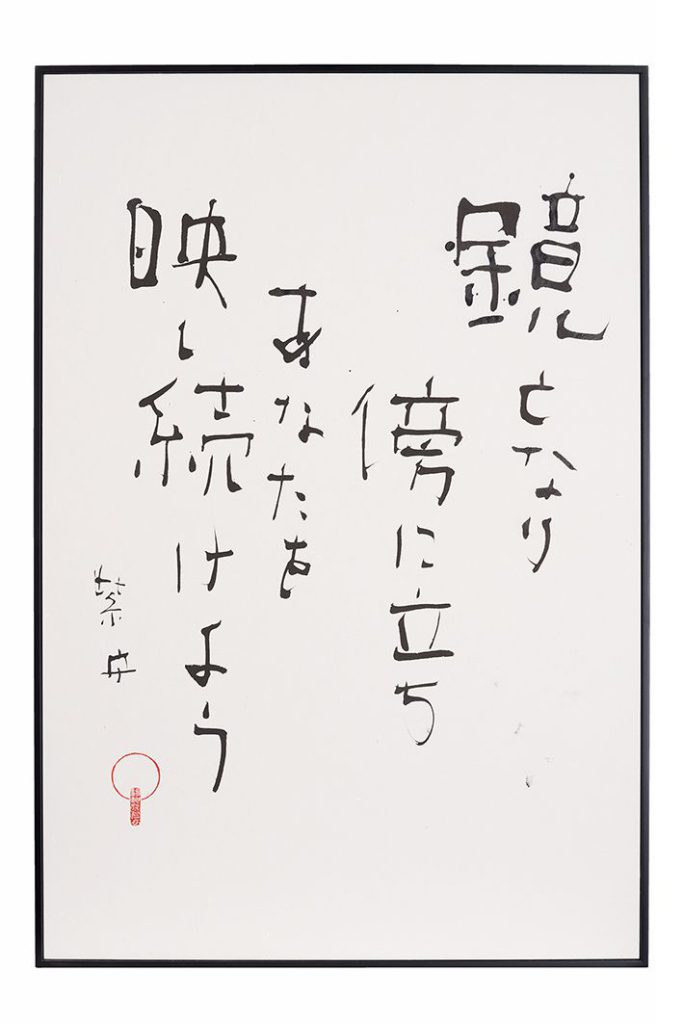 鏡となり
傍に立ち
あなたを
映し続けよう
紫舟